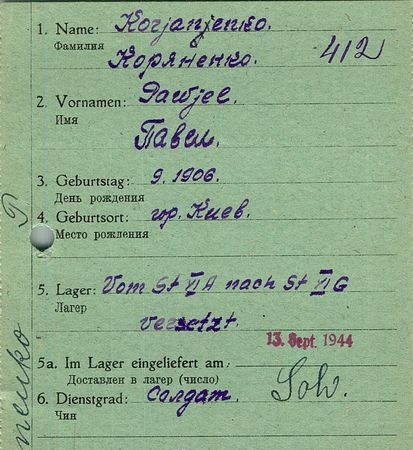 1. Name: Korjanjenko.
Фамилия Коряненко.
412
2. Vornamen: Pawjel.
Имя Павел.
3. Geburtstag: 9. 1906.
День рождения
4. Geburtsort: гор. Киев.
Место рождения
5. Lager: Vom St VI A nach St VI G
Лагер versetzt.
13. Sept. 1944
5a. Im Lager eingeliefert am:
Доставлен в лагер (число)
6. Dienstgrad: Солдат.
Чин
Sol.